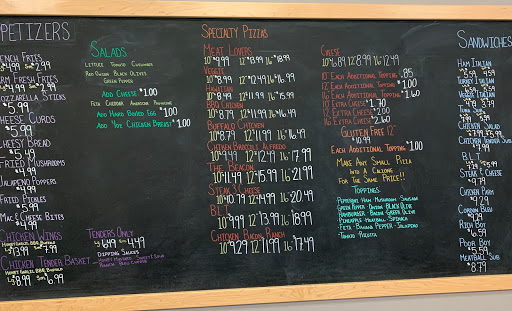 PETIZERS
ENCH FRIES
$4.99
RM FRESH FRIES
$4.99
OZZARELLA STICKS
$5.99
HEESE CURDS
$5.99
HEESY BREAD
$5.99
RIED MUSHROOMS
$4.99
JALAPENO POPPERS
$4.99
FRIED PICKLES
$5.99
MAC & CHEESE BITES
$4.99
CHICKEN WINGS
HONEY GARLIC, BBQ, BUFFALO
CHICKEN TENDER BASKET
HONEY GARLIC, BBQ, BUFFALO
$8.99 $6.99
TENDERS ONLY
$6.99 $4.49
DIPPING SAUCES
SALADS
LETTUCE TOMATO CUCUMBER
RED ONION BLACK OLIVES
GREEN PEPPER
ADD CHEESE $1.00
FETA CHEDDAR AMERICAN PROVOLONE
ADD HARD BOILED EGG $1.00
ADD 4OZ CHICKEN BREAST $1.00
SPECIALTY PIZZAS
MEAT LOVERS
10" $9.99 12" $13.99 16" $18.99
VEGGIE
10" $8.99 12" $12.49 16" $16.99
HAWAIIAN
10" $8.99 12" $11.99 16" $16.99
BBQ CHICKEN
10" $8.79 12" $11.99 16" $16.49
BUFFALO CHICKEN
10" $8.79 12" $11.99 16" $16.49
CHICKEN BROCCOLI ALFREDO
10" $9.49 12" $12.49 16" $17.99
THE BEACON
10" $11.49 12" $15.49 16" $21.99
STEAK & CHEESE
10" $10.99 12" $14.99 16" $20.49
BLT
10" $9.99 12" $13.99 16" $18.99
CHICKEN BACON RANCH
10" $9.29 12" $11.99 16" $17.49
CHEESE
10" $6.89 12" $8.99 16" $12.49
10" EACH ADDITIONAL TOPPING .85
12" EACH ADDITIONAL TOPPING $1.25
16" EACH ADDITIONAL TOPPING $1.60
10" EXTRA CHEESE $1.70
12" EXTRA CHEESE
16" EXTRA CHEESE
GLUTEN FREE 12"
$10.99
EACH ADDITIONAL TOPPING $1.00
MAKE ANY SMALL PIZZA
INTO A CALZONE
FOR THE SAME PRICE!!
TOPPINGS
PEPPERONI HAM MUSHROOM SAUSAGE
GREEN PEPPER ONION BLACK OLIVE
HAMBURGER BACON GREEN OLIVE
PINEAPPLE MEATBALL SPINACH
FETA BANANA PEPPER JALAPENO
TOMATO RICOTTA
SANDWICHES
HAM ITALIAN
TURKEY ITALIAN
VEGGIE
TUNA SUB
CHICKEN SALAD
CHICKEN TENDER SUB
B.L.T.
STEAK & CHEESE
$9.79
CHICKEN PARM
$9.29
CORDON BLEU
$9.29
RICH BOY
$6.59
POOR BOY
$5.59
MEATBALL SUB
$8.79